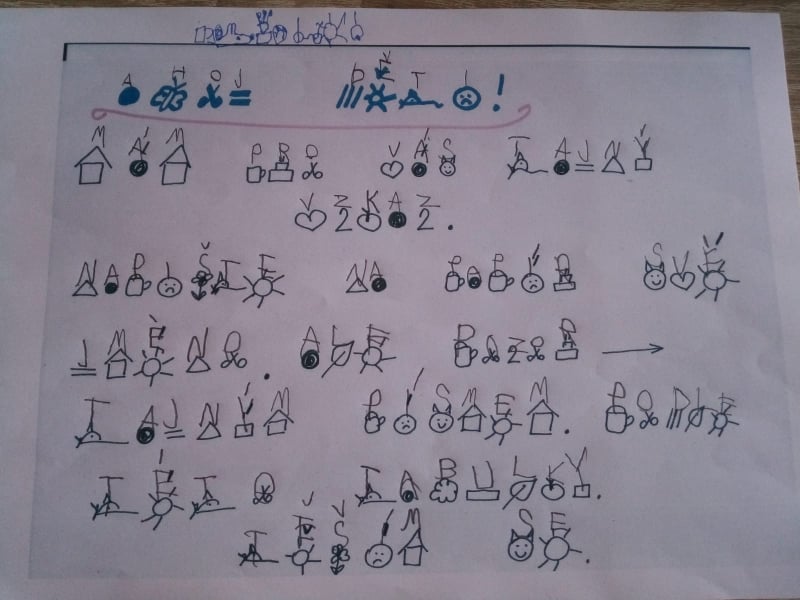 AHOJ DĚTI!
MÁM PRO VÁS TAJNÝ
VZKAZ.
NAPIŠTE NA PAPÍR SVÉ
JMÉNO. ALE POZOR →
TAJNÝM PÍSMEM. PODLE
TÉTO TABULKY.
TĚŠÍM SE.